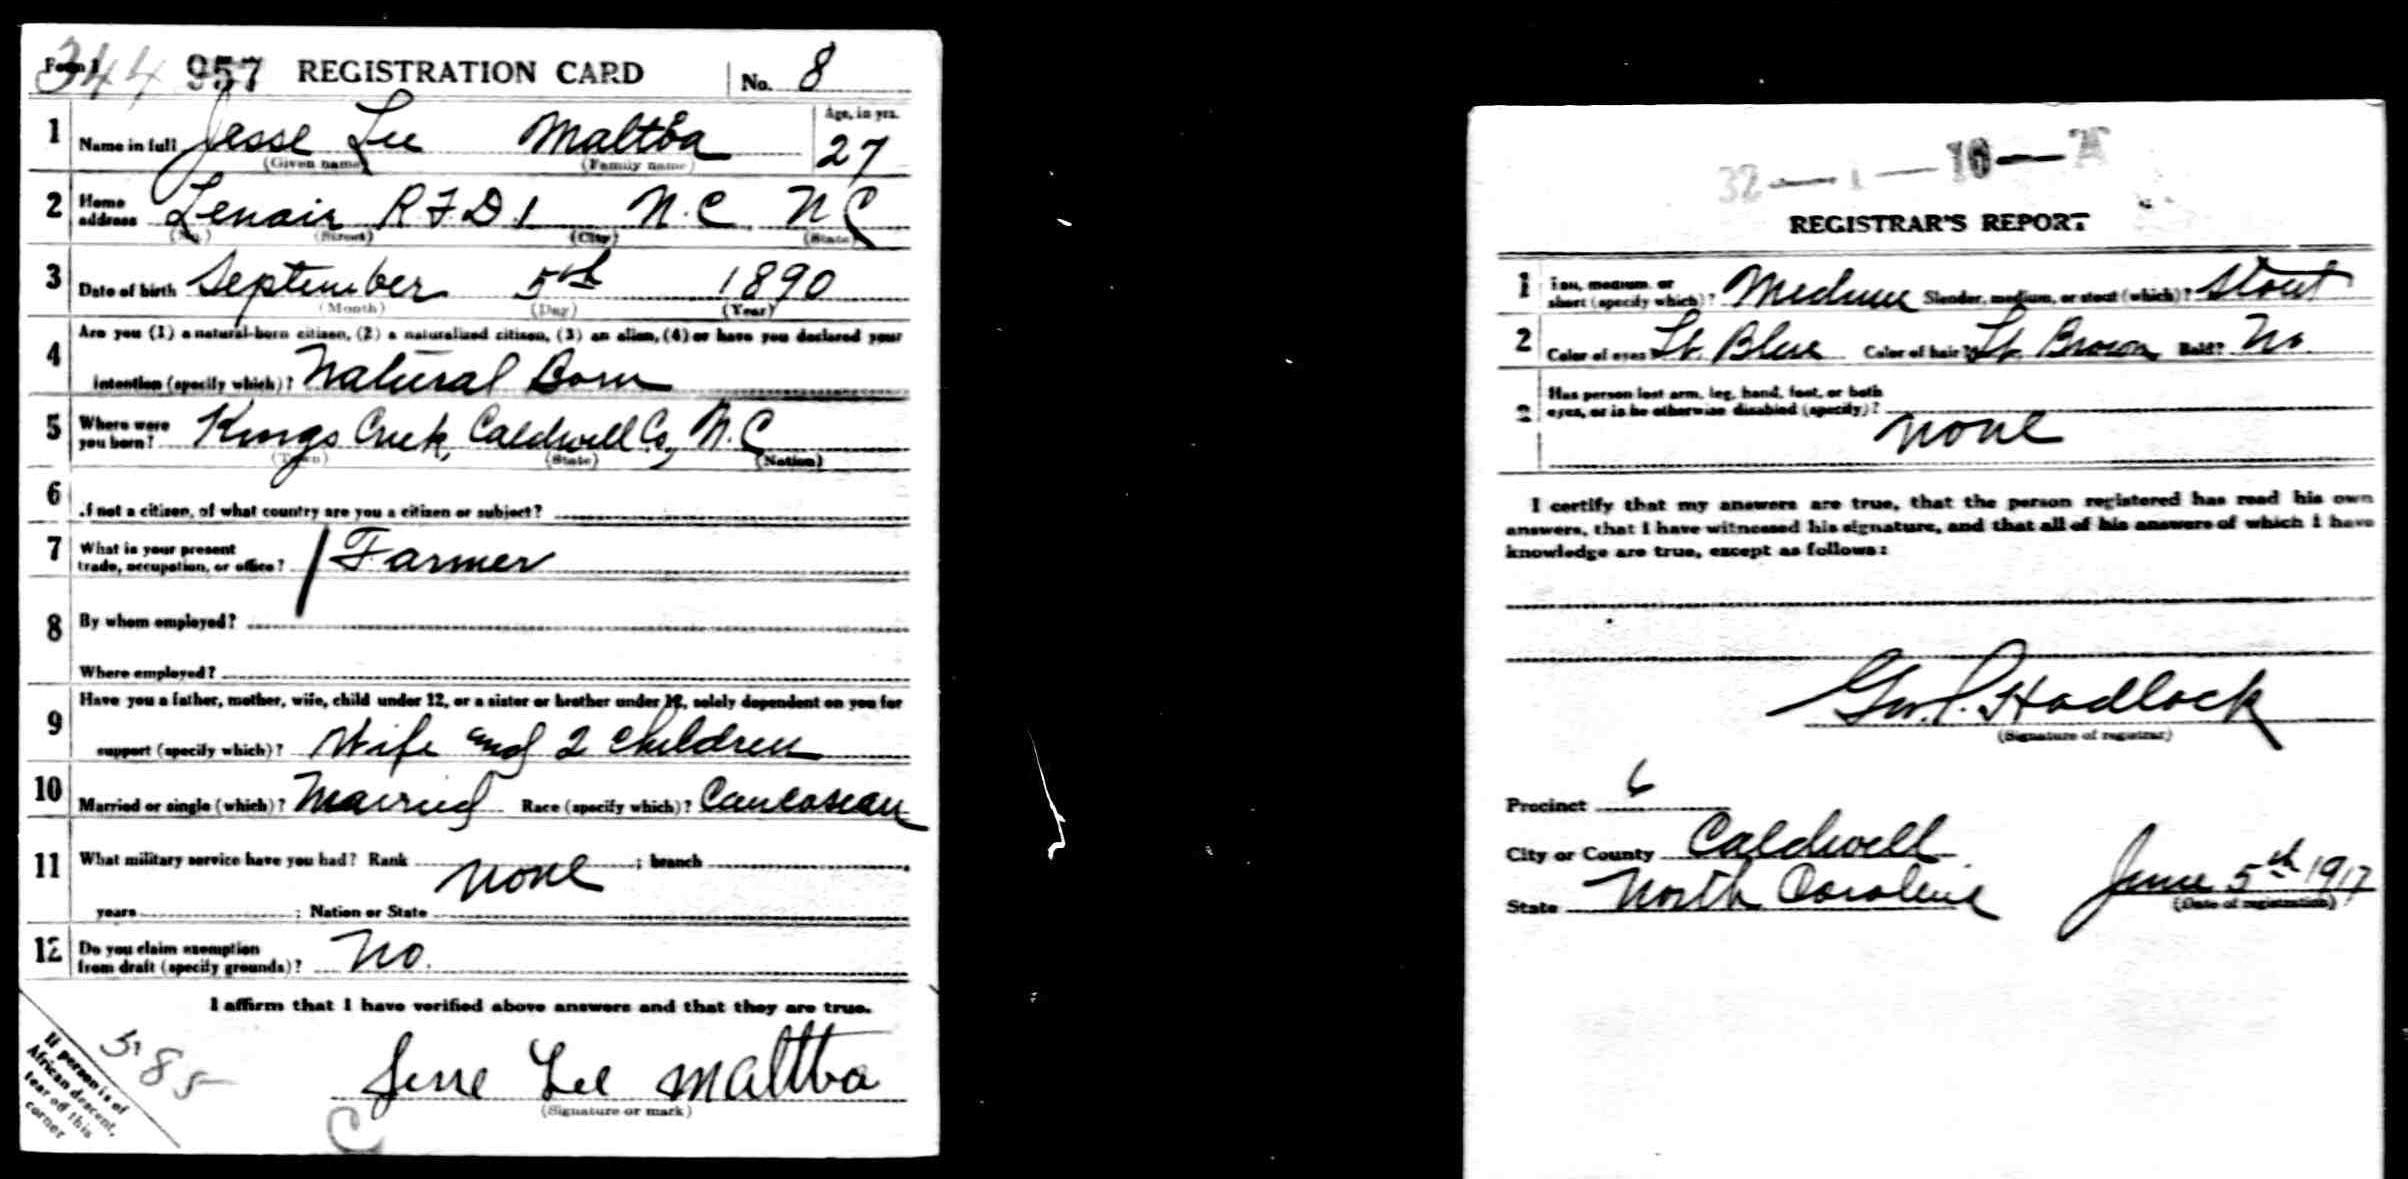 344 957 REGISTRATION CARD No. 8
Form 1
1 Name in full Jesse Lee Maltba Age, in yrs. 27
(Given name) (Family name)
2 Home address Lenoir R.F.D 1 N.C. N C
(No.) (Street) (City) (State)
3 Date of birth September 5th 1890
(Month) (Day) (Year)
4 Are you (1) a natural-born citizen, (2) a naturalized citizen, (3) an alien, (4) or have you declared your
intention (specify which)? Natural Born
5 Where were you born? Kings Creek, Caldwell Co, N.C
(Town) (State) (Nation)
6 If not a citizen, of what country are you a citizen or subject?
7 What is your present trade, occupation, or office? Farmer
8 By whom employed?
Where employed?
9 Have you a father, mother, wife, child under 12, or a sister or brother under 12, solely dependent on you for
support (specify which)? Wife and 2 children
10 Married or single (which)? Married Race (specify which)? Caucasean
11 What military service have you had? Rank none ; branch
years ; Nation or State
12 Do you claim exemption from draft (specify grounds)? No.
I affirm that I have verified above answers and that they are true.
Jesse Lee Maltba
(Signature or mark)
If person is of
African descent,
tear off this
corner
585
C
32 — 1 — 10 — A
REGISTRAR'S REPORT
1 Tall, medium, or short (specify which)? Medium Slender, medium, or stout (which)? Stout
2 Color of eyes Lt. Blue Color of hair? Lt. Brown Bald? No.
3 Has person lost arm, leg, hand, foot, or both
eyes, or is he otherwise disabled (specify)?
none
I certify that my answers are true, that the person registered has read his own
answers, that I have witnessed his signature, and that all of his answers of which I have
knowledge are true, except as follows:
Hadlock
(Signature of registrar)
Precinct 6
City or County Caldwell
State North Carolina June 5th 1917
(Date of registration)